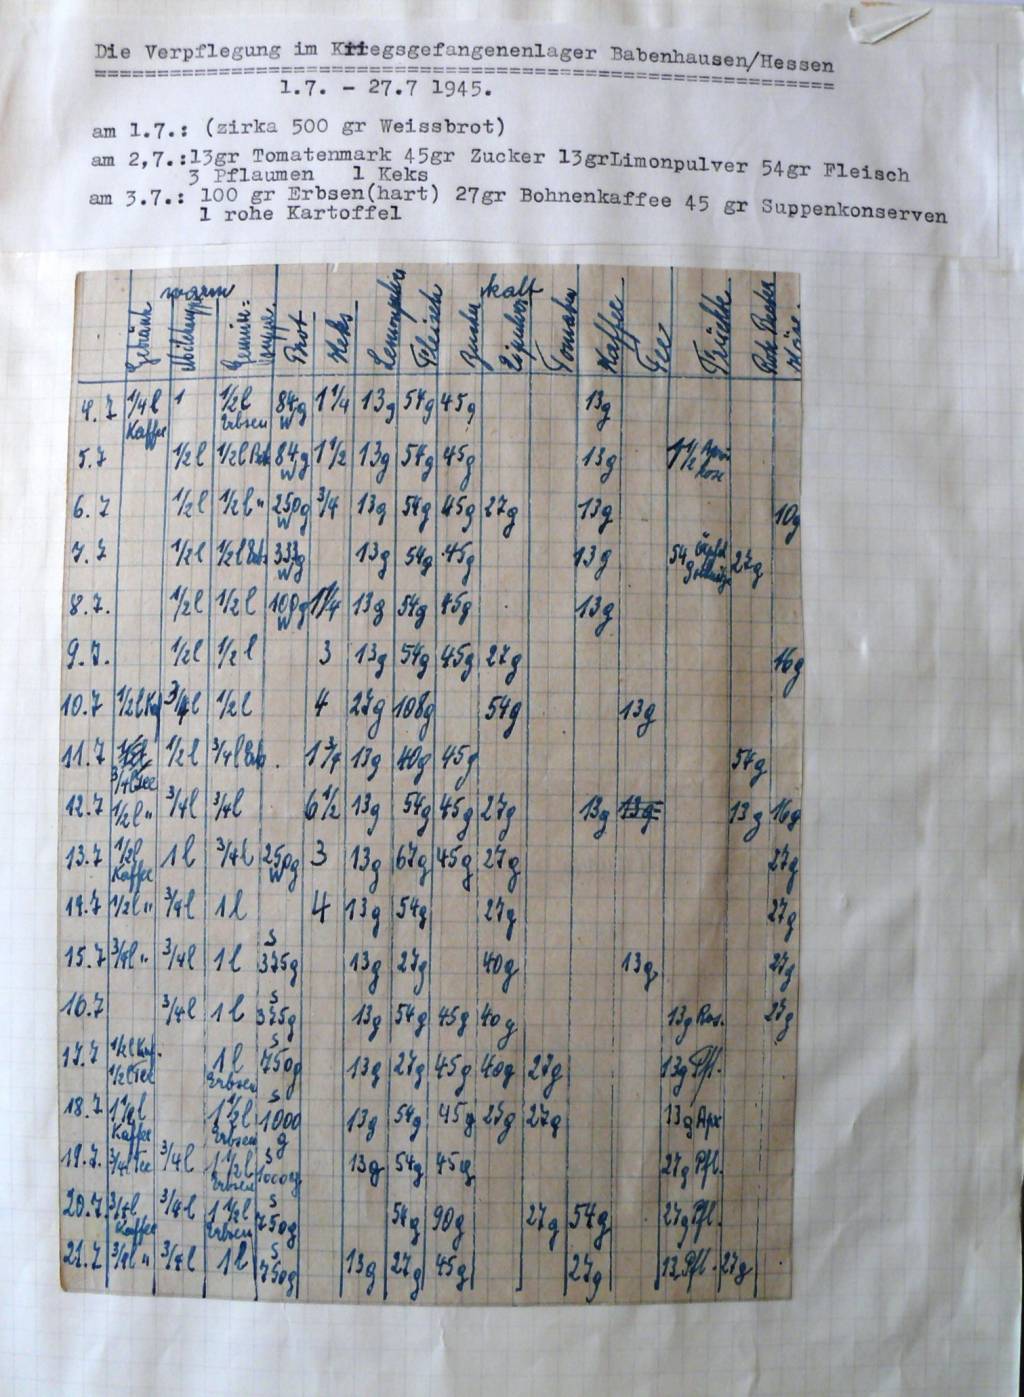 Die Verpflegung im Kriegsgefangenenlager Babenhausen/Hessen
1.7. - 27.7 1945.
am 1.7.: (zirka 500 gr Weissbrot)
am 2,7.:13gr Tomatenmark 45gr Zucker 13grLimonpulver 54gr Fleisch
3 Pflaumen 1 Keks
am 3.7.: 100 gr Erbsen(hart) 27gr Bohnenkaffee 45 gr Suppenkonserven
1 rohe Kartoffel
warm kalt
Getränk Milchsuppe Gemüse= suppe. Brot Keks Fleisch Zucker Tomaten Kaffee Tee Früchte Käse.
4.7 1/4 l Kaffee 1 1/2 l Erbsen 84g W 1 1/4 13g 54g 45g 13g
5.7 1/2 l 1/2 l 84g W 1 1/2 13g 54g 45g 13g 1 1/2
6.7 1/2 l 1/2 l " 250g W 3/4 13g 54g 45g 27g 13g 10g
7.7 1/2 l 1/2 l 333g W 13g 54g 45g 13g 54 g 27g
8.7. 1/2 l 1/2 l 100g W 1 1/4 13g 54g 45g 13g
9.7. 1/2 l 1/2 l 3 13g 54g 45g 27g 16g
10.7 1/2 l Kaf 3/4 l 1/2 l 4 27g 108g 54g 13g
11.7 3/4 l Tee 1/2 l 3/4 l 1 3/4 13g 40g 45g 54g
12.7 1/2 l " 3/4 l 3/4 l 6 1/2 13g 54g 45g 27g 13g 13g 13g 16g
13.7 1/2 l Kaffee 1 l 3/4 l 250g W 3 13g 67g 45g 27g 27g
14.7 1/2 l " 3/4 l 1 l 4 13g 54g 27g 27g
15.7 3/4 l " 3/4 l 1 l S 375g 13g 27g 40g 13g 27g
16.7 3/4 l 1 l S 375g 13g 54g 45g 40g 13g Ros. 27g
17.7 1/2 l Kaf. 1/2 l Tee 1 l Erbsen S 750g 13g 27g 45g 40g 27g 13g Pfl.
18.7 1 1/2 l Kaffee 1 1/2 l Erbsen S 1000 g 13g 54g 45g 27g 27g 13g Apr
19.7. 3/4 l Tee 3/4 l 1 1/2 l Erbsen S 1000g 13g 54g 45g 27g Pfl.
20.7. 3/4 l Kaffee 3/4 l 1 1/2 l Erbsen S 750g 54g 90g 27g 54g 27g Pfl.
21.7 3/4 l " 3/4 l 1 l S 750g 13g 27g 45g 27g 13 Pfl. 27g